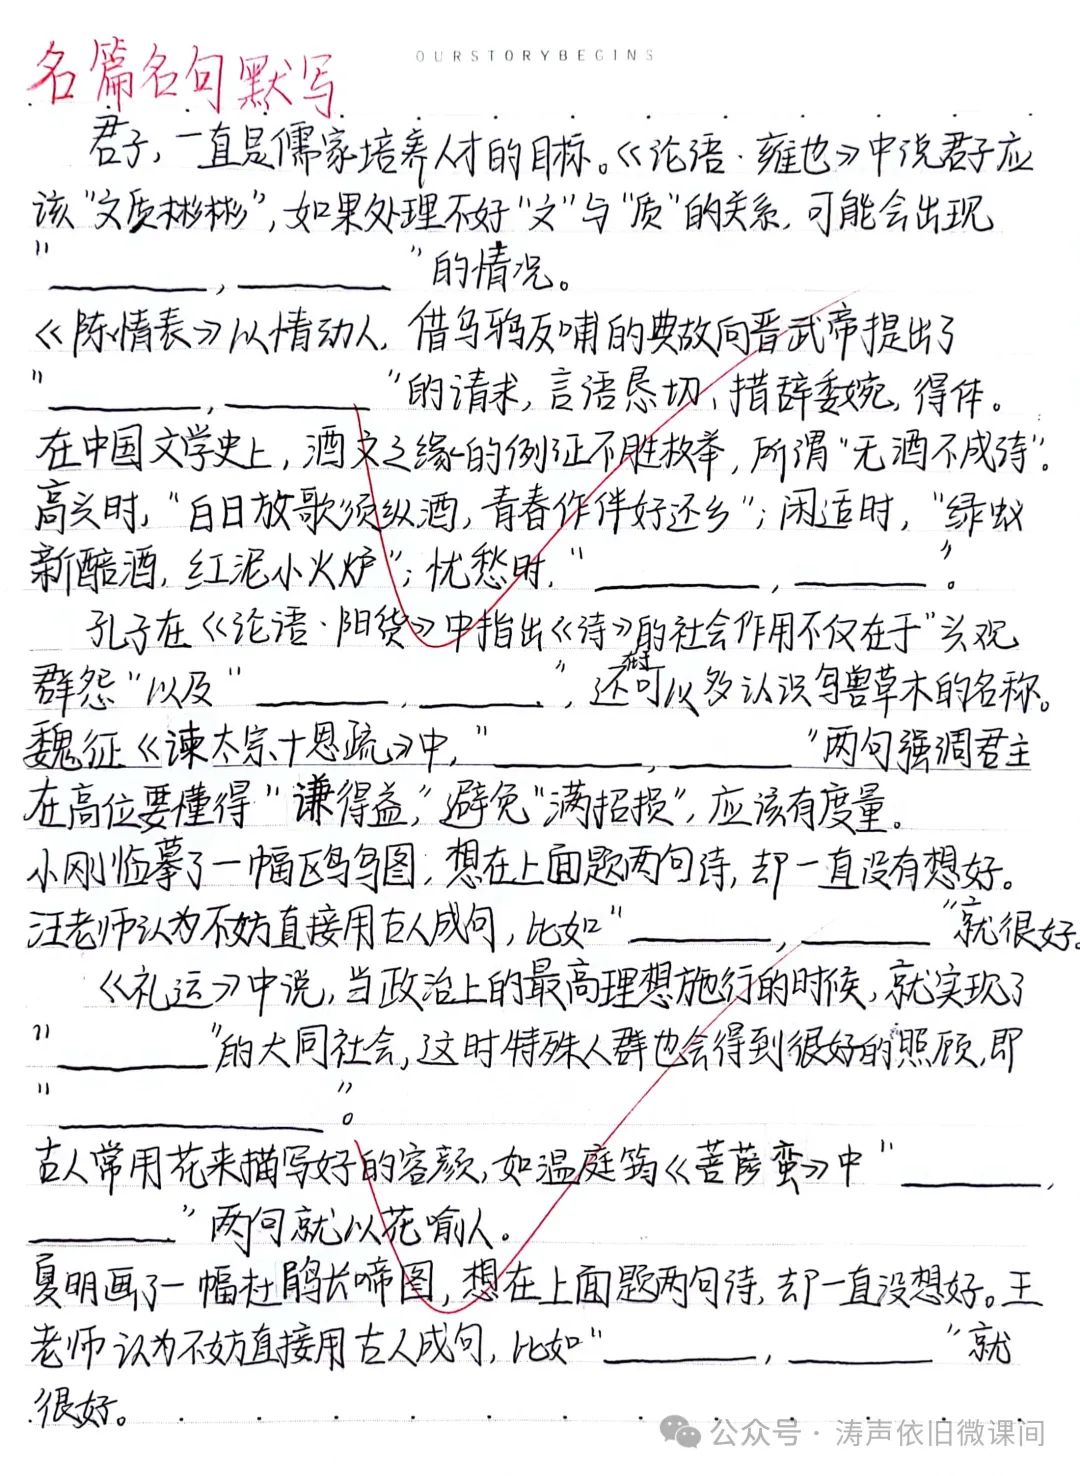 OURSTORYBEGINS
名篇名句默写
君子，一直是儒家培养人才的目标。《论语·雍也》中说君子应
该“文质彬彬”，如果处理不好“文”与“质”的关系，可能会出现
“________，________”的情况。
《陈情表》以情动人，借乌鸦反哺的典故向晋武帝提出了
“________，________”的请求，言语恳切、措辞委婉，得体。
在中国文学史上，酒文之缘的例证不胜枚举，所谓“无酒不成诗”。
高兴时，“白日放歌须纵酒，青春作伴好还乡”；闲适时，“绿蚁
新醅酒，红泥小火炉”；忧愁时，“________，________”。
孔子在《论语·阳货》中指出《诗》的社会作用不仅在于“兴观
群怨”以及“________，________”，还可以多认识鸟兽草木的名称。
魏征《谏太宗十思疏》中，“________，________”两句强调君主
在高位要懂得“谦得益”，避免“满招损”，应该有度量。
小刚临摹了一幅鸥鸟图，想在上面题两句诗，却一直没有想好。
汪老师认为不妨直接用古人成句，比如“________，________”就很好。
《礼运》中说，当政治上的最高理想施行的时候，就实现了
“________”的大同社会，这时特殊人群也会得到很好的照顾，即
“________________”。
古人常用花来描写好的容颜，如温庭筠《菩萨蛮》中“________，
________”两句就以花喻人。
夏明画了一幅杜鹃长啼图，想在上面题两句诗，却一直没想好。王
老师认为不妨直接用古人成句，比如“________，________”就
很好。
公众号·涛声依旧微课间